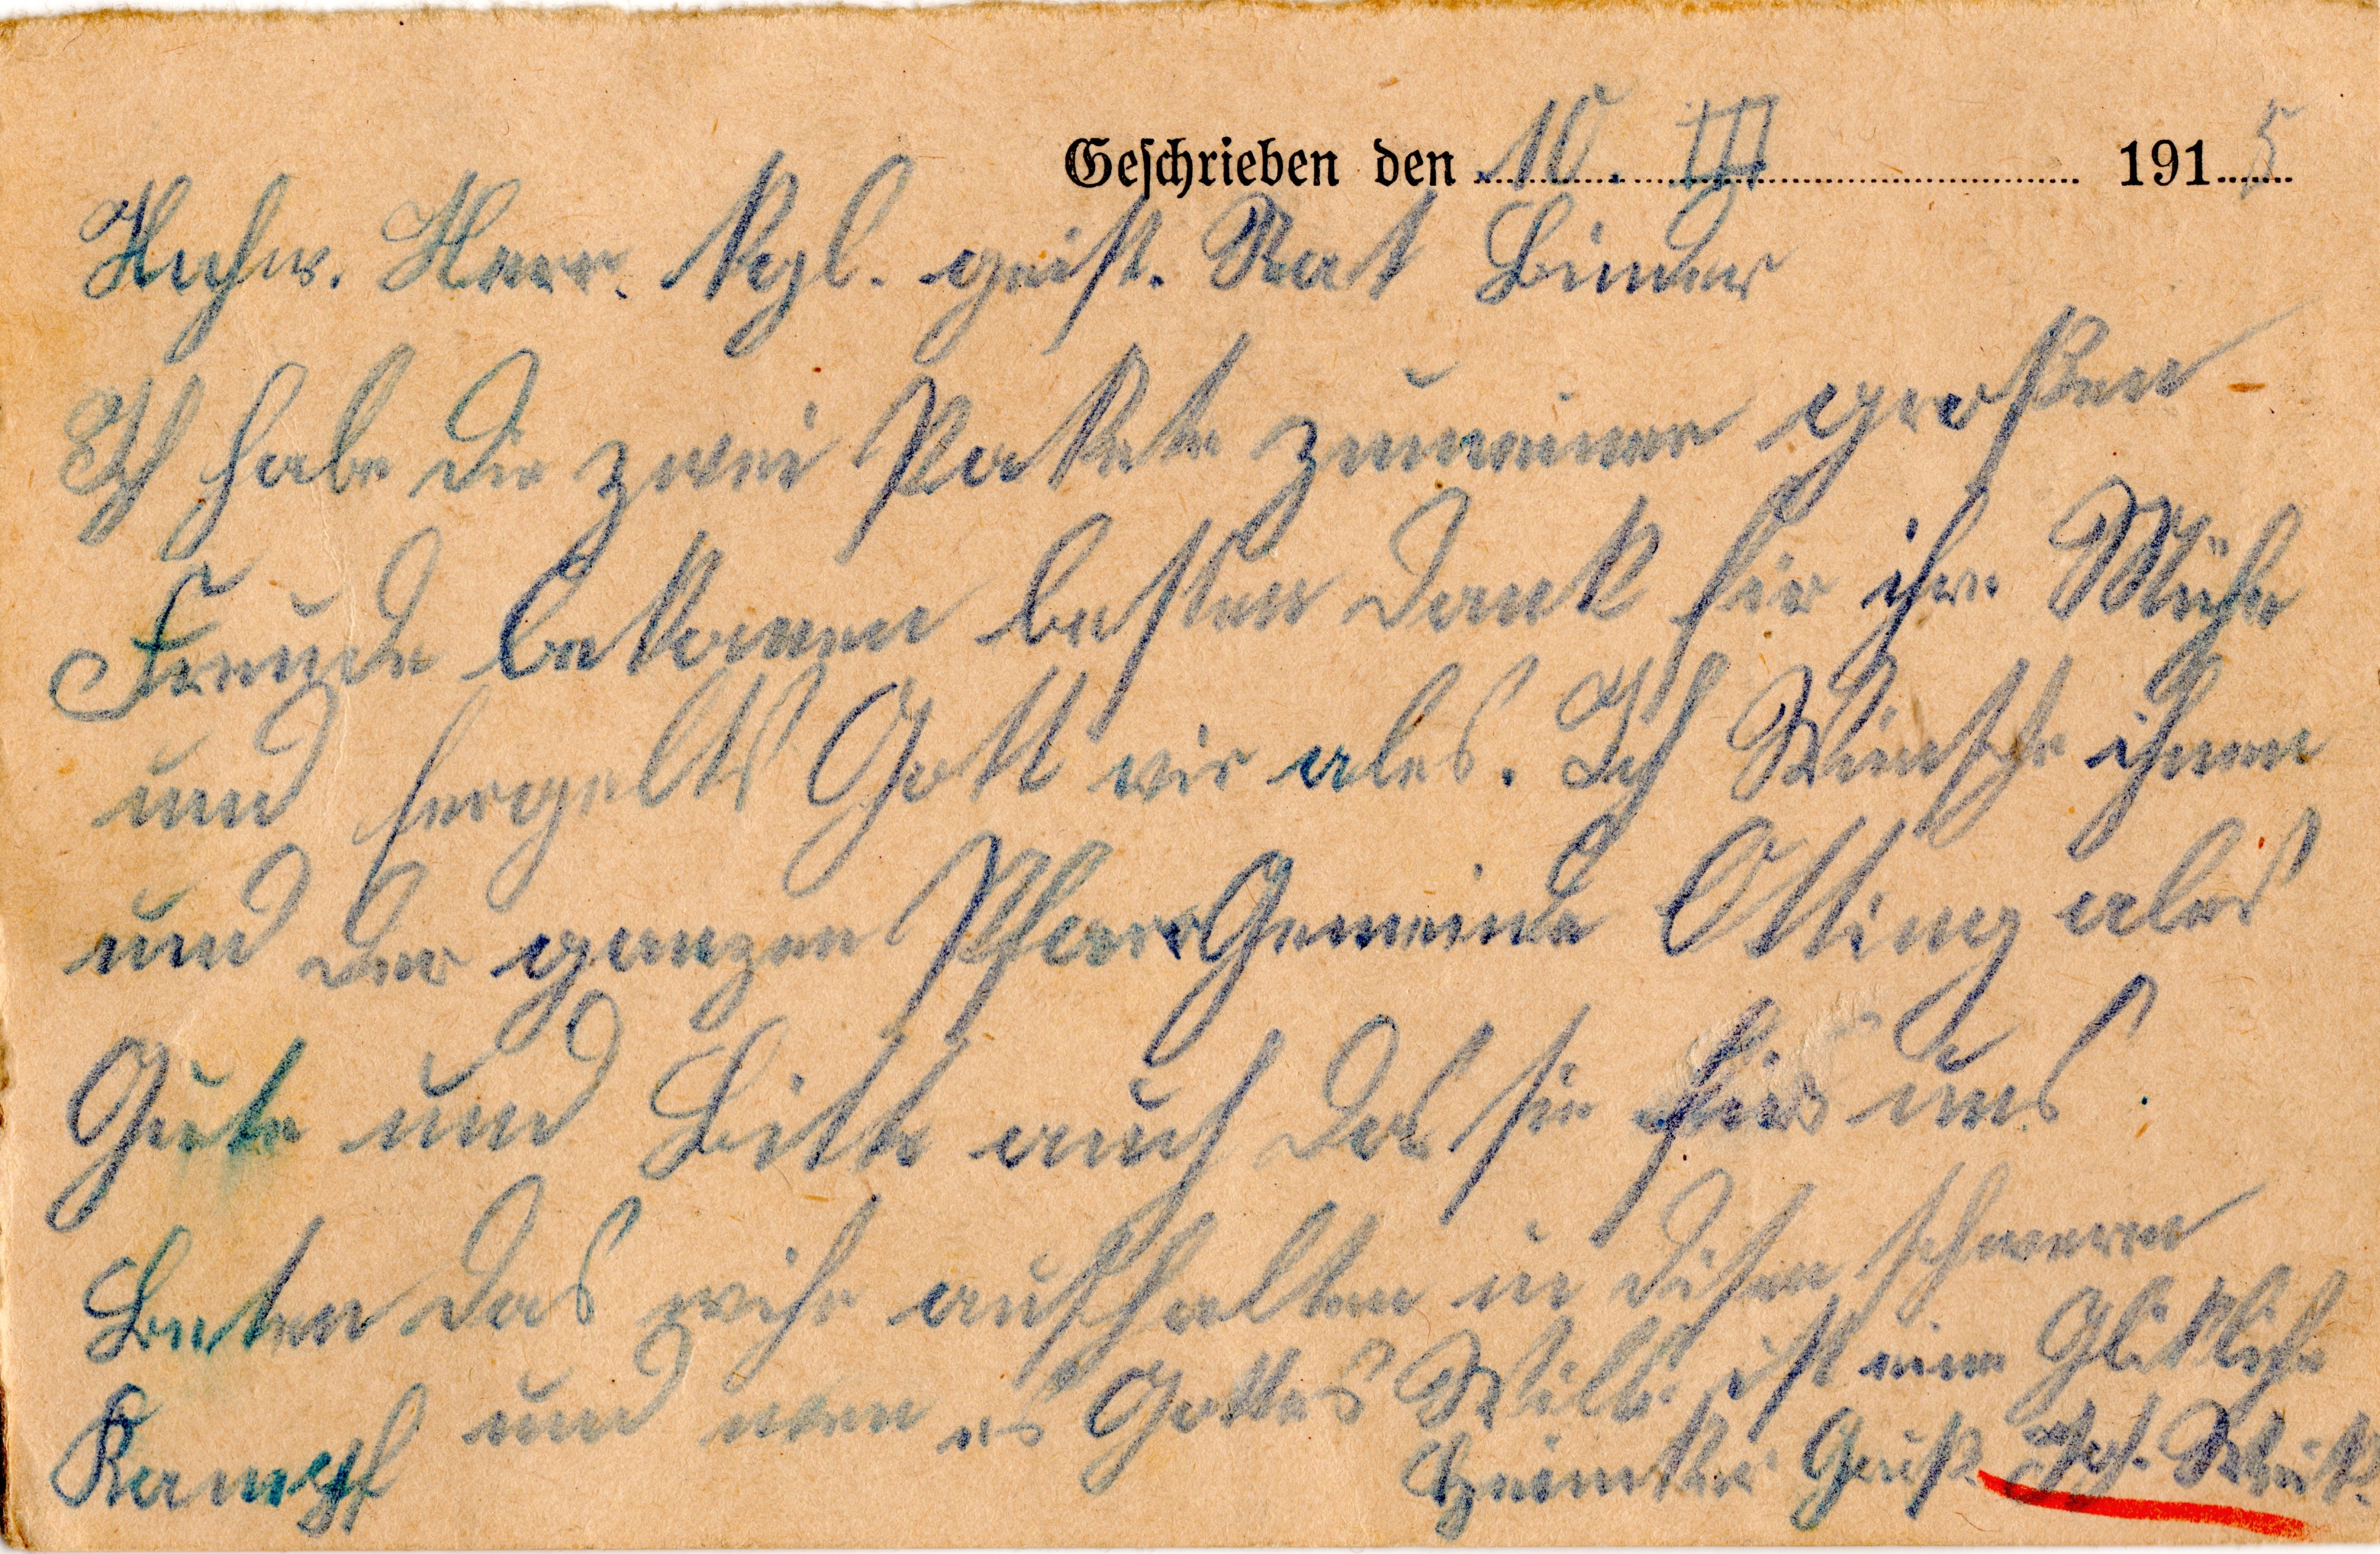 Geschrieben den 10. III 1915
Hochw. Herr. Kgl. geist. Rat Binder
Ich habe die zwei Pakete zu meiner großen
Freude bekomen besten Dank für ihre Mühe
und fergelts Gott vir ales. Ich Wünsche ihnen
und der ganzen Pfarr Gemeinde Otting ales
Gute und Bitte auch das sie für uns
Beten das wihr aushalten in disen schweren
Kampf und wen es Gottes Wille ist eine Glükliche
Heimker Gruß Jos.